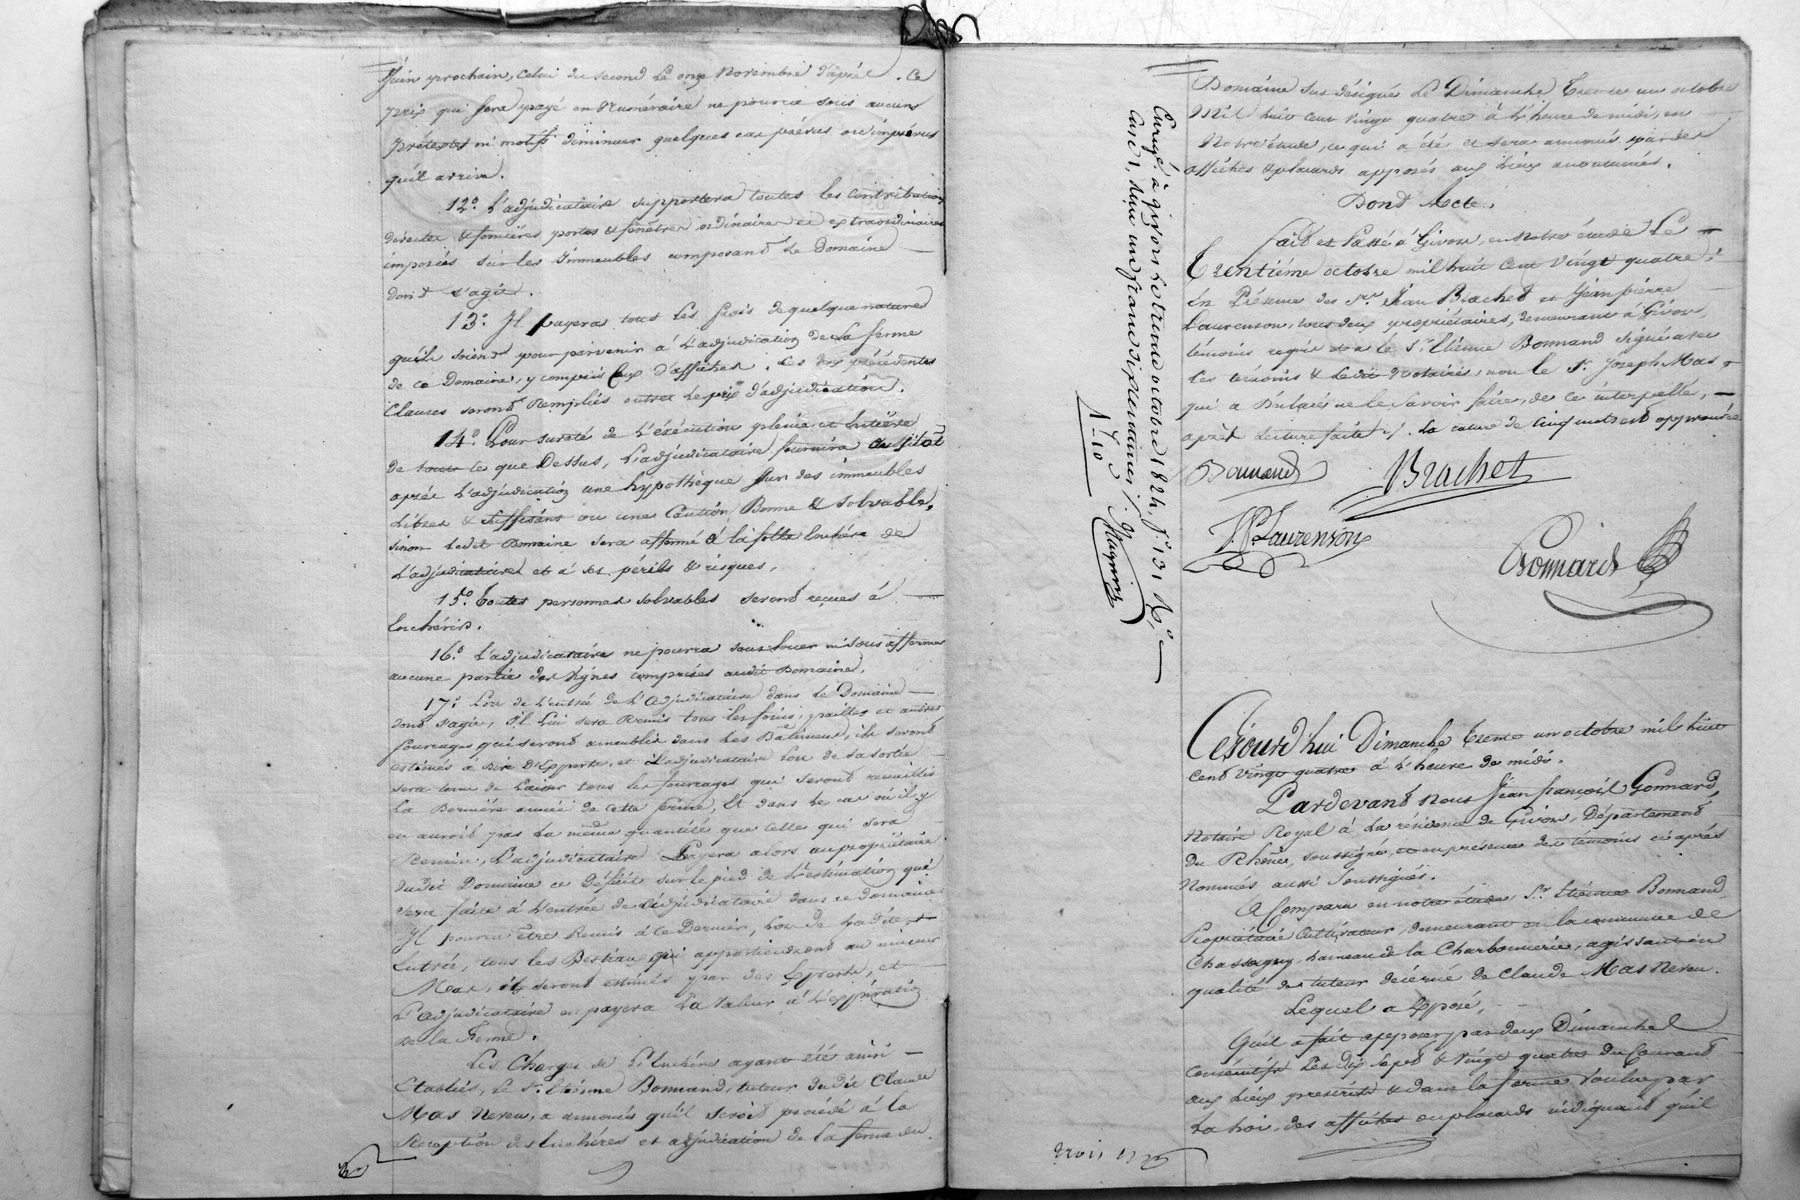 Juin prochain, Celui du second Le onze Novembre d'après. Ce
prix qui sera payé en Numéraire ne pourra sous aucuns
prétextes ni motifs diminuer quelques cas prévus ou imprévus
qu'il arrive.
12.° L'adjudicataire supportera toutes les Contributions
directes & foncières portes & fenêtres ordinaires et extraordinaires
imposées sur les Immeubles composant Le Domaine
dont s'agit.
13.° Il payera tous Les frais de quelque nature
qu'ils soient pour parvenir a L'adjudication de La ferme
de ce Domaine, y compris Ceux d'affiches. Les deux précédentes
Clauses seront Remplies outre Le prix d'adjudication.
14.° Pour sureté de L'éxécution pleine et Entière
de tout ce que Dessus, L'adjudicataire fournira aussitôt
après L'adjudication une hypothèque sur des immeubles
Libres & suffisans ou une Caution Bonne & solvable,
sinon Ledit Domaine sera affermé à la folle Enchère de
L'adjudicataire et à ses périls & risques.
15.° Toutes personnes solvables seront reçues à
Enchérir.
16.° L'adjudicataire ne pourra sous louer ni sous affermer
aucune partie des Vignes comprises audit Domaine.
17.° Lors de L'entrée de L'Adjudicataire dans Le Domaine
dont s'agit, Il Lui sera Remis tous les foins, pailles et autres
fourrages qui seront amoublés dans Les Bâtimens, ils seront
estimés à dire D'Experts, et L'adjudicataire Lors de sa sortie
sera tenu de Laisser tous Les fourrages qui seront recueillis
La Dernière année de cette ferme, Et dans Le cas où il y
en auroit pas La même quantité que Celle qui sera
Remise, L'adjudicataire Payera alors au propriétaire
dudit Domaine ce Déficit sur le pied de L'estimation qui
sera faite à L'entrée de L'adjudicataire dans ce Domaine
Il pourra être Remis à ce Dernier, Lors de La dite
Entrée, tous les Bestiaux qui appartiendront au mineur
Mas, ils seront estimés par des Experts, et
L'Adjudicataire en payera La Valeur à L'expiration
de la Ferme.
Les Charges de L'Enchère ayant été ainsi
Etablies, Le Sr. Etienne Bonnand, tuteur dudit Claude
Mas Neveu, a annoncé qu'il seroit procédé à La
Réception des Enchères et adjudication de La ferme du
Domaine sus désigné Le Dimanche Trente un octobre
Mil huit cent Vingt quatre à L'heure de midi, en
Notre étude, ce qui a été et sera annoncé par des
affiches & placards apposés aux Lieux accoutumés.
Dont Acte.
Fait et Passé à Givors, en Notre étude Le
Trentième octobre mil huit Cent Vingt quatre
En Présence des Srs. Jean Brachet et Jean pierre
Laurenson, tous deux propriétaires, demeurant à Givors,
témoins requis Le Sr. Etienne Bonnand signé avec
Les témoins & Ledit Notaire, non le Sr. Joseph Mas
qui a Déclaré ne le savoir faire, de ce interpellé,
après Lecture faite ./. La rature de Cinq mots est approuvée
Bonnand Brachet
JP Laurenson
Gonnard
Enregé. à givors Le trente octobre 1824, f° 131 R°, C°
1 - 10
Cejourd'hui Dimanche Trente un octobre mil huit
Cent Vingt quatre à L'heure de midi.
Pardevant Nous Jean françois Gonnard,
Notaire Royal à La résidence de Givors, Département
du Rhône, soussigné, et en présence des témoins ci après
Nommés aussi Soussignés.
A Comparu en notre étude Sr. Etienne Bonnand
Propriétaire Cultivateur, demeurant en la commune de
Chassagny, hameau de la Charbonnerie, agissant en
qualité de tuteur décerné de Claude Mas Neveu.
Lequel a Exposé,
Qu'il a fait apposer par deux Dimanches
Consécutifs Les dix sept & Vingt quatre du Courant
aux Lieux prescrits & dans la forme Voulue par
La Loi, des affiches ou placards indiquant qu'il